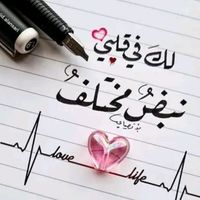 لكَ في قلبي
نبضُ مختلفُ
love life